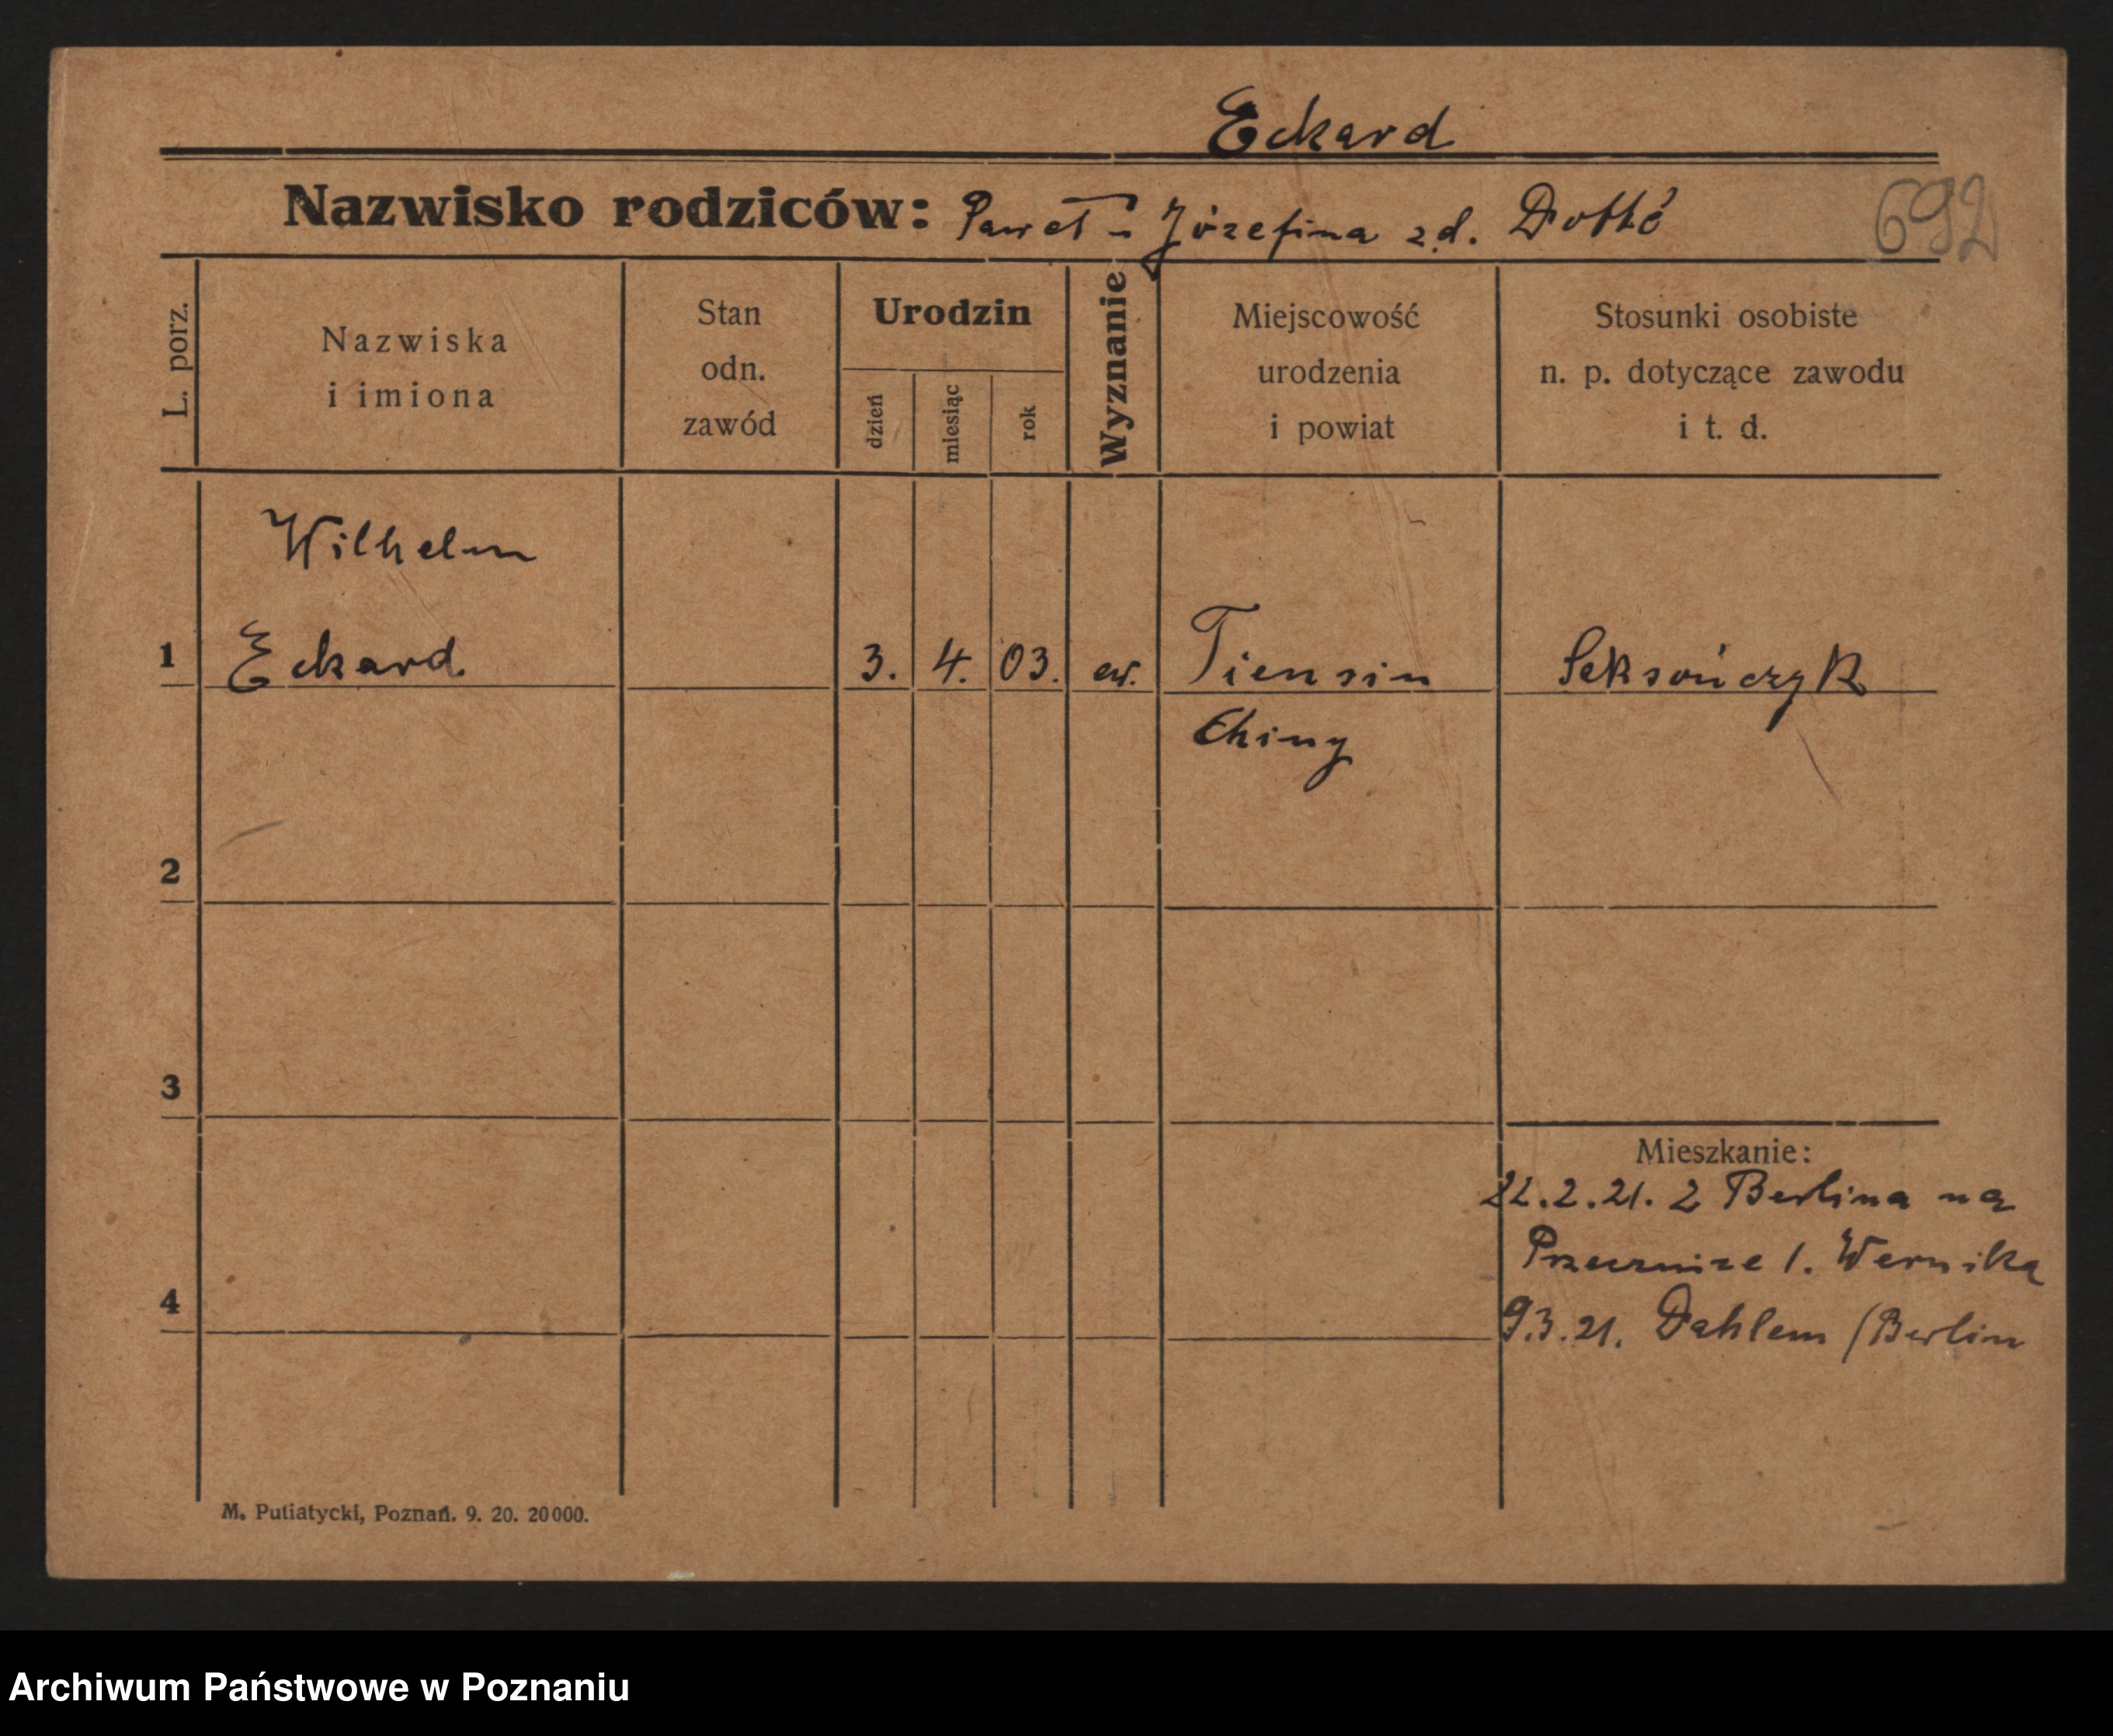 Eckard
Nazwisko rodziców: Paweł - Józefina zd.
692
L. porz.
Nazwiska
i imiona
Stan
odn.
zawód
Urodzin
dzień
miesiąc
rok
Wyznanie
Miejscowość
urodzenia
i powiat
Stosunki osobiste
n. p. dotyczące zawodu
i t. d.
Wilhelm
1 Eckard. 3. 4. 03. ew. Tiensin Seksończyk
Chiny
2
3
Mieszkanie:
22.2.21. z Berlina na
1. Wernika
4
9.3.21. Dahlem / Berlin
M. Putiatycki, Poznań. 9. 20. 20000.
Archiwum Państwowe w Poznaniu